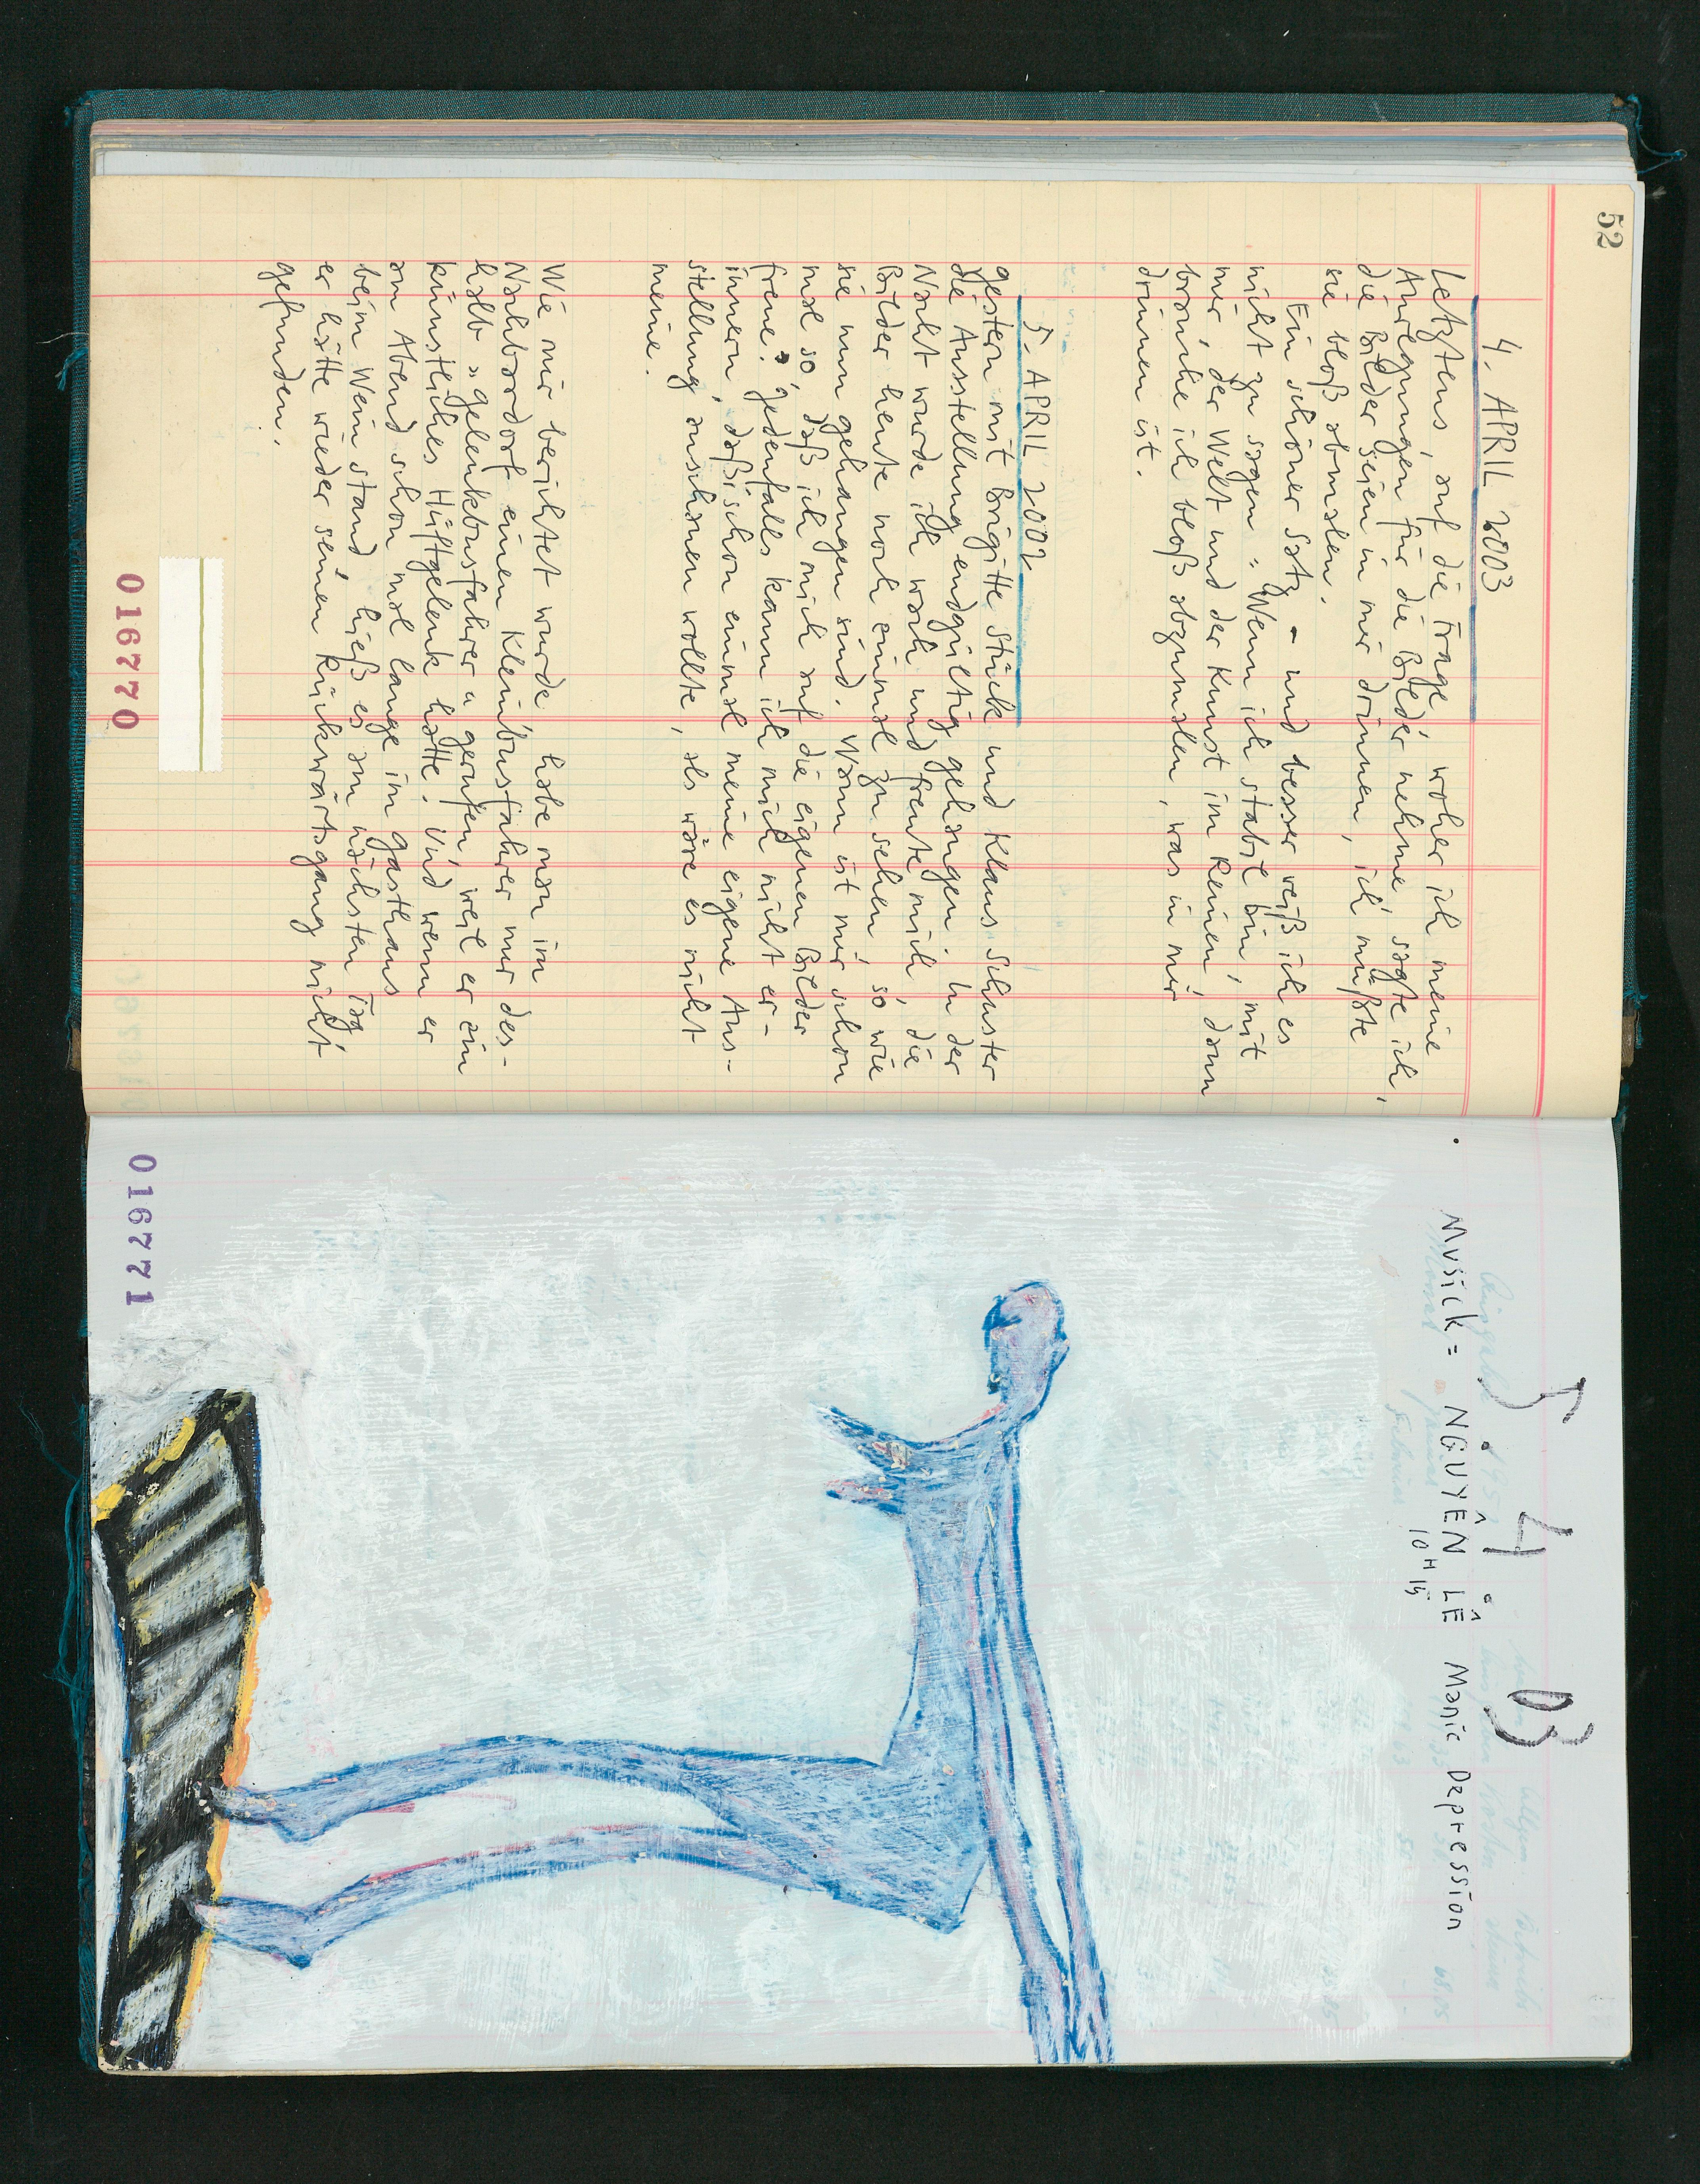 52
4. APRIL 2003
Letztens, auf die Frage, woher ich meine
Anregungen für die Bilder nehme, sagte ich,
die Bilder seien in mir drinnen, ich müßte
sie bloß abmalen.
Ein schöner Satz - und besser weiß ich es
nicht zu sagen: Wenn ich stabil bin, mit
mir, der Welt und der Kunst im Reinen, dann
brauche ich bloß abzumalen, was in mir
drinnen ist.
5. APRIL 2002
gestern mit Brigitte Stück und Klaus Schuster
die Ausstellung endgültig gehangen. In der
Nacht wurde ich wach und freute mich, die
Bilder heute noch einmal zu sehen, so wie
sie nun gehangen sind. Wann ist mir schon
mal so, daß ich mich auf die eigenen Bilder
freue? Jedenfalls kann ich mich nicht er-
innern, daß ich schon einmal meine eigene Aus-
stellung anschauen wollte, als wäre es nicht
meine.
Wie mir berichtet wurde, habe man im
Nachbardorf einen Kleinbusfahrer nur des-
halb „gelenkbusfahrer" gerufen, weil er ein
künstliches Hüftgelenk hatte. Und wenn er
am Abend schon mal lange im Gasthaus
beim Wein stand, hieß es am nächsten Tag
er hätte wieder seinen Rückwärtsgang nicht
gefunden.
016770
5. 4. 03
Musick = NGUYÊN LÊ Manic Depression
10 H 15
016771